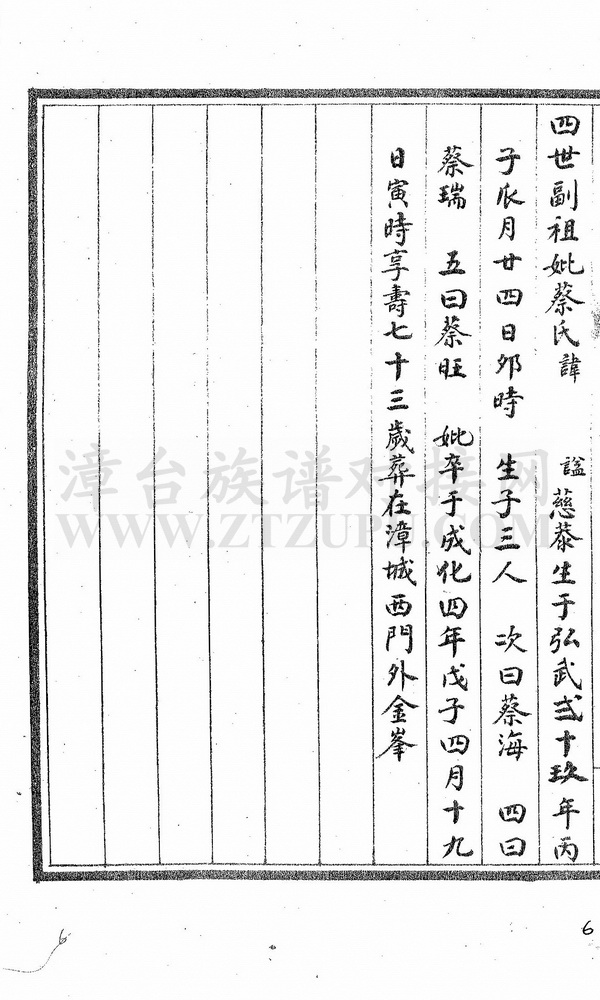 四世副祖妣蔡氏諱 謚慈恭生于弘武弍十玖年丙
子 月廿四日卯時 生子三人 次曰蔡海 四曰
蔡瑞 五曰蔡旺 妣卒于成化四年戊子四月十九
日寅時享壽七十三歲葬在漳城西門外金峯
漳台族谱对接网
WWW.ZTZUPU.COM
6
6